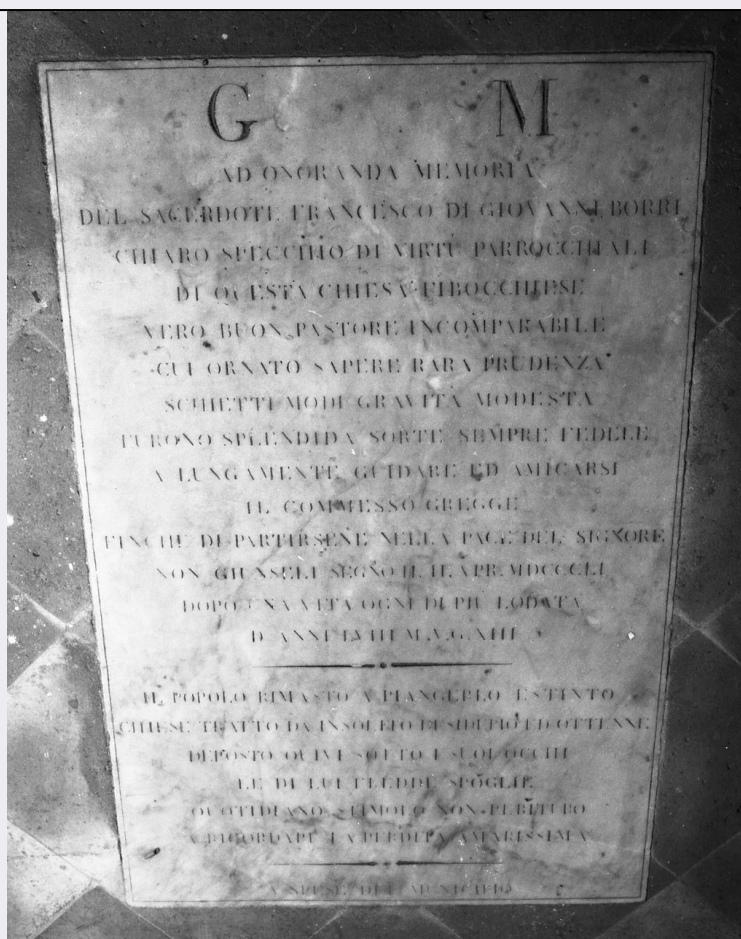 G M
AD ONORANDA MEMORIA
DEL SACERDOTE FRANCESCO DI GIOVANNI BORRI
CHIARO SPECCHIO DI VIRTÙ PARROCCHIALI
DI QUESTA CHIESA FIBOCCHIESE
VERO BUON PASTORE INCOMPARABILE
CUI ORNATO SAPERE RARA PRUDENZA
SCHIETTI MODI GRAVITÀ MODESTA
FURONO SPLENDIDA SORTE SEMPRE FEDELE
A LUNGAMENTE GUIDARE ED AMICARSI
IL COMMESSO GREGGE
FINCHE DI PARTIRSENE NELLA PACE DEL SIGNORE
NON GIUNSELI SEGNO IL II APR. MDCCCLI
DOPO UNA VITA OGNI DI PIÙ LODATA
D ANNI LVIII M.V.G.XIII
IL POPOLO RIMASTO A PIANGERLO ESTINTO
CHIESE TRATTO DA INSOLITO DESIDERIO ED OTTENNE
DEPOSTO QUIVI SOTTO I SUOI OCCHI
LE DI LUI FREDDE SPOGLIE
QUOTIDIANO STIMOLO NON PERITURO
A RICORDARE LA PERDITA AMARISSIMA
A SPESE DEL MUNICIPIO